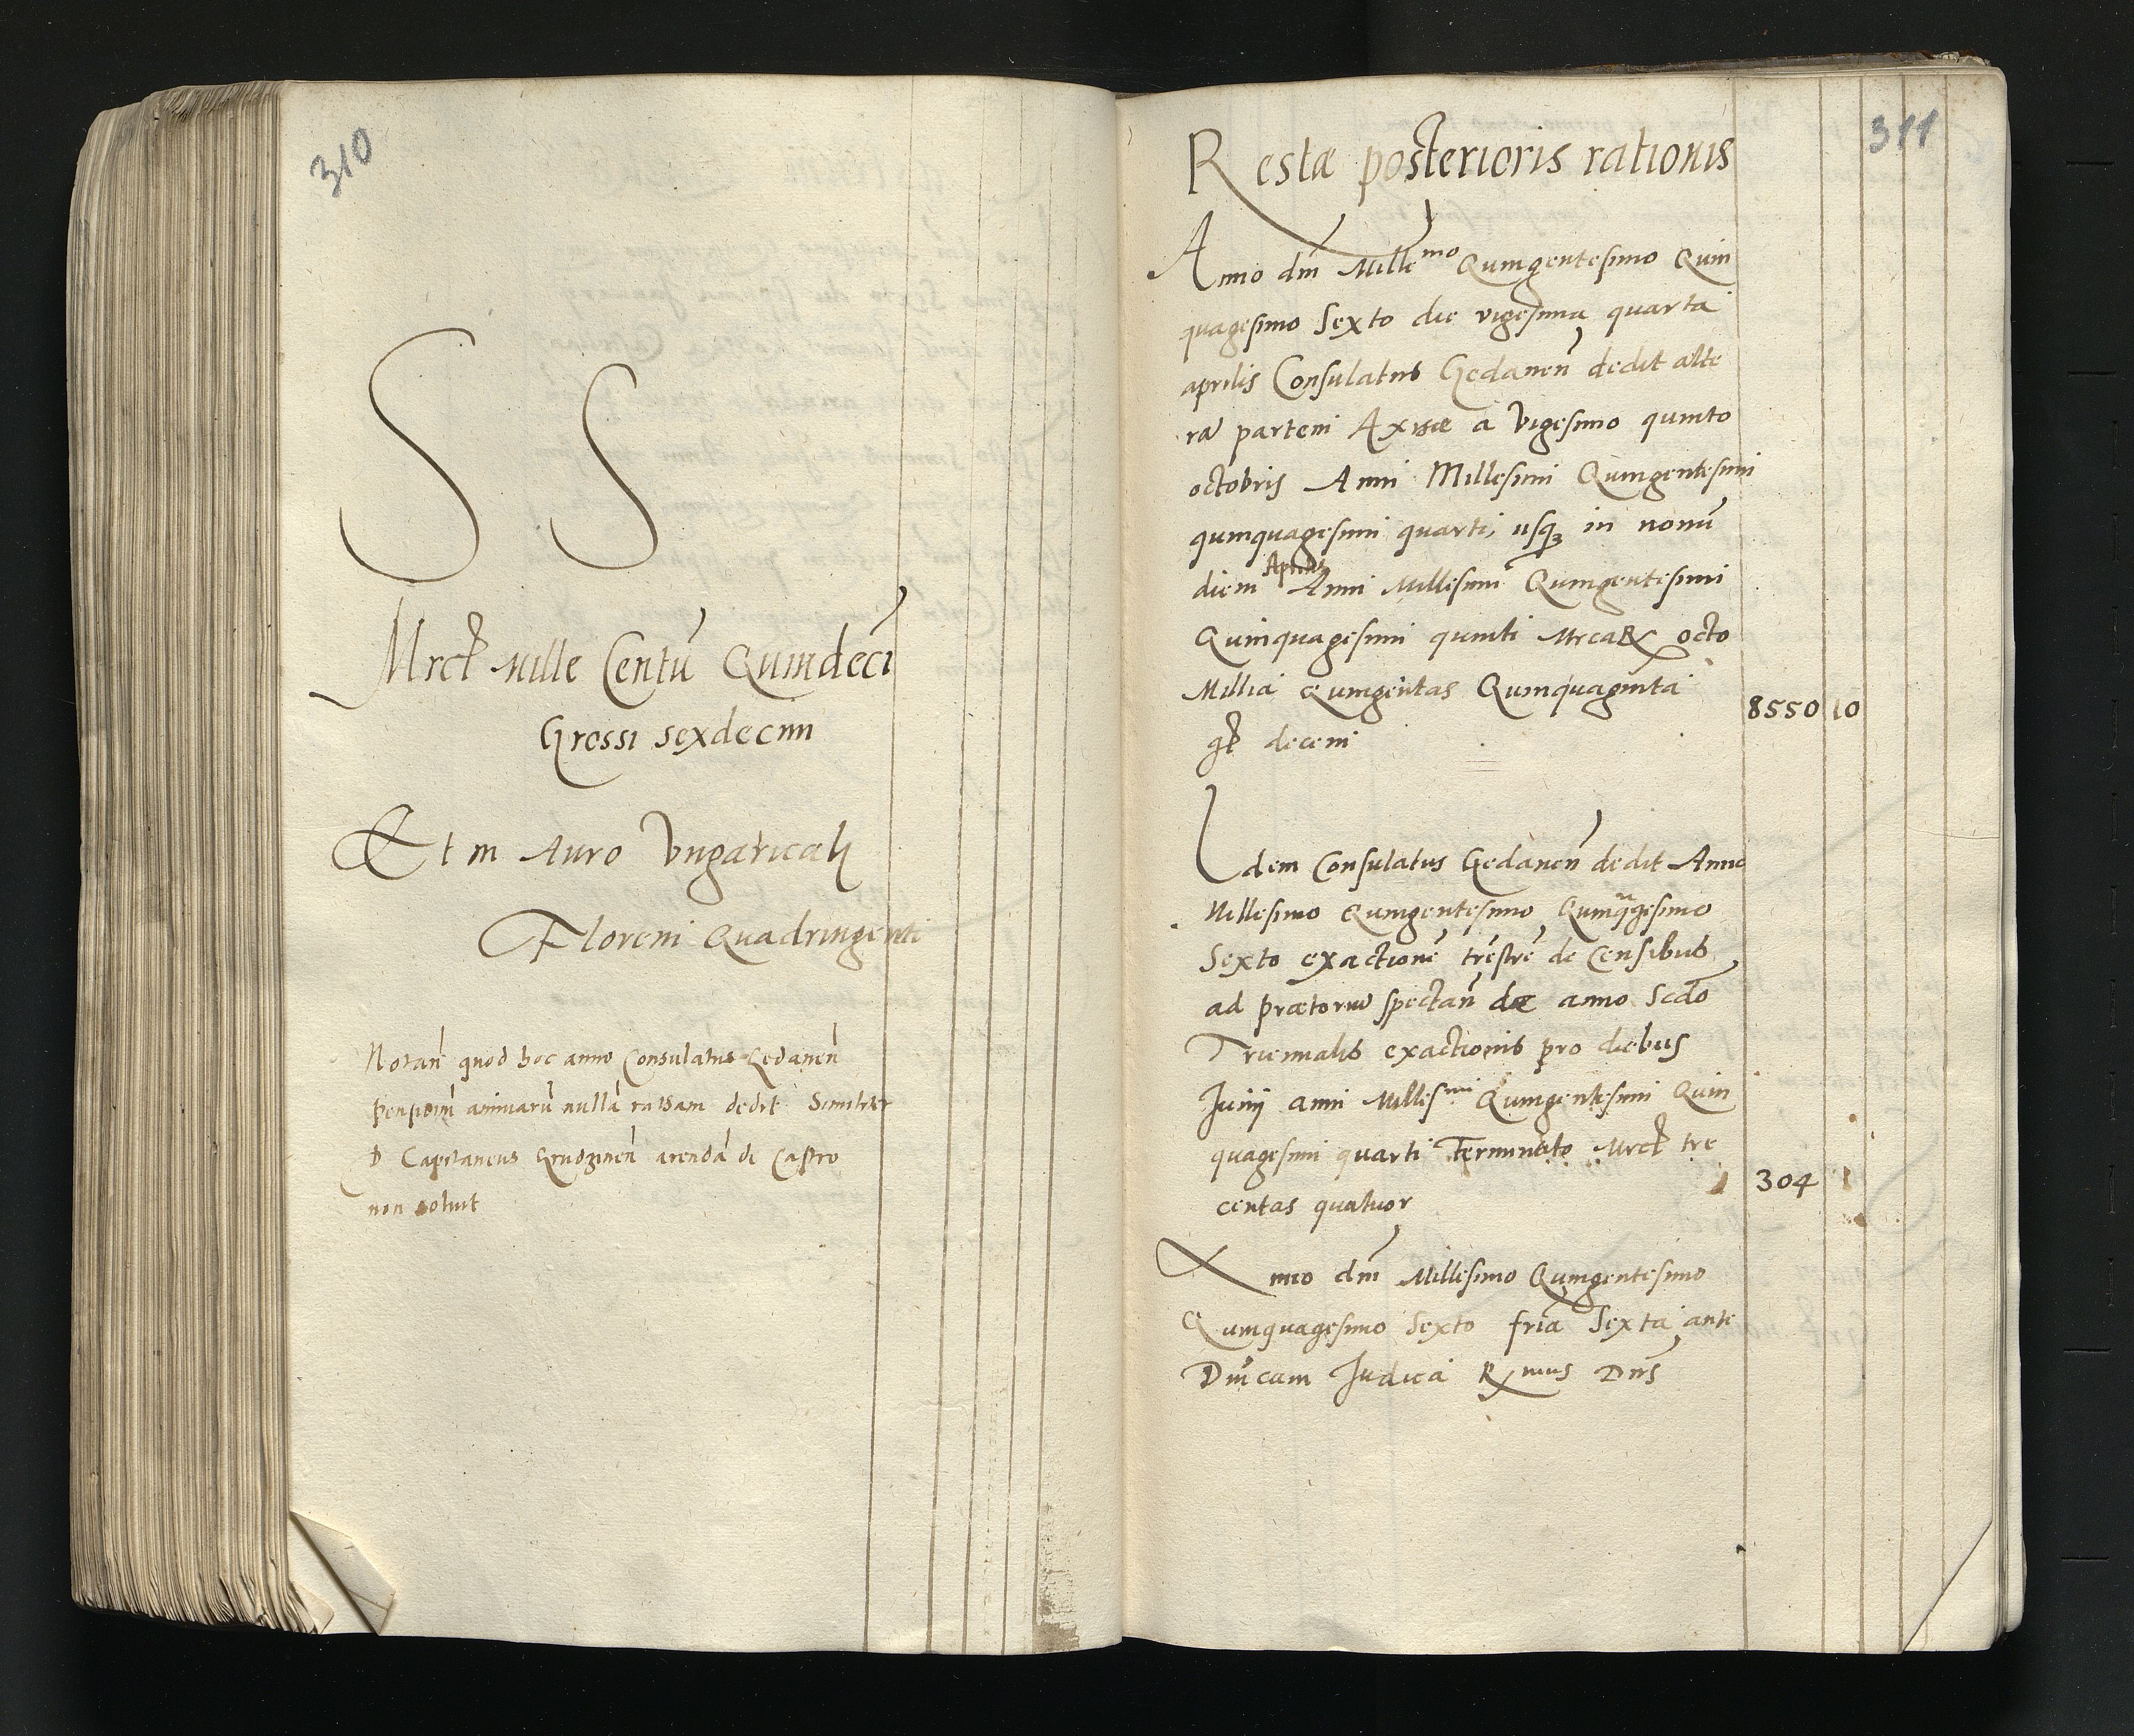 310
S S
Mrcę Mille Centũ Quindecĩ
Grossi sexdecim
Et in Auro Vngaricali
Floreni Quadringenti
Notañ quod hoc anno Consulatus Gedaneñ
animarũ nullã ratSam dedit Similiter
D Capitaneus arendã de Castro
non soluit
311
Restæ posterioris rationis
Anno dñi Mille mo Quingentesimo Quin
quagesimo Sexto die vigesima quarta
aprilis Consulatus Gedaneñ dedit alte
rã partem Axisæ a Vigesimo quinto
octobris Anni Millesimi Quingentesimi
quinquagesimi quarti, usq3 in nonũ
diem Aprilis Anni Millesimi Quingentesimi
Quinquagesimi quinti MrcaRꝝ octo
Millia Quingentas Quinquaginta
8550 10
gř decem
Idem Consulatus Gedaneñ dedit Anno
Millesimo Quingentesimo Quinqᵃgesimo
Sexto exactionẽ trẽstrẽ de Censibus
ad prætoriũ spectañ de anno Scdõ
Triennalis exactionis pro diebus
Junij anni Millesimi Quingentesimi Quin
quagesimi quarti Terminato Mrcę tre
304
centas quatuor
Anno dñi Millesimo Quingentesimo
Quinquagesimo Sexto fria Sexta ante
Dñicam Judica Rmus Dñs